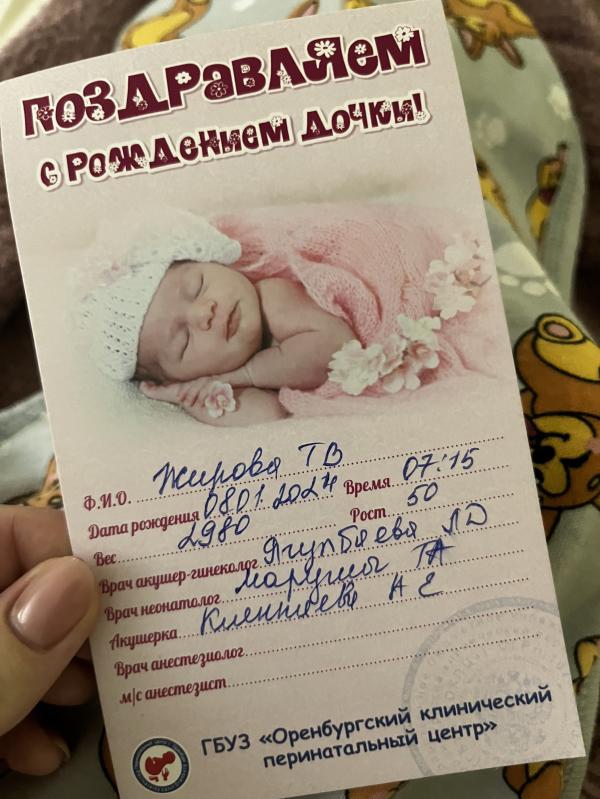 ПОЗДРАВЛЯЕМ
С РОЖДЕНИЕМ ДОЧКИ!
Ф.И.О. Жирова ТВ
Дата рождения 08.01.2024 Время 07:15
Вес 2980 Рост 50
Врач акушер-гинеколог ЛД
Врач неонатолог ТА
Акушерка Н Е
Врач анестезиолог
м/с анестезист
ГБУЗ «Оренбургский клинический
перинатальный центр»